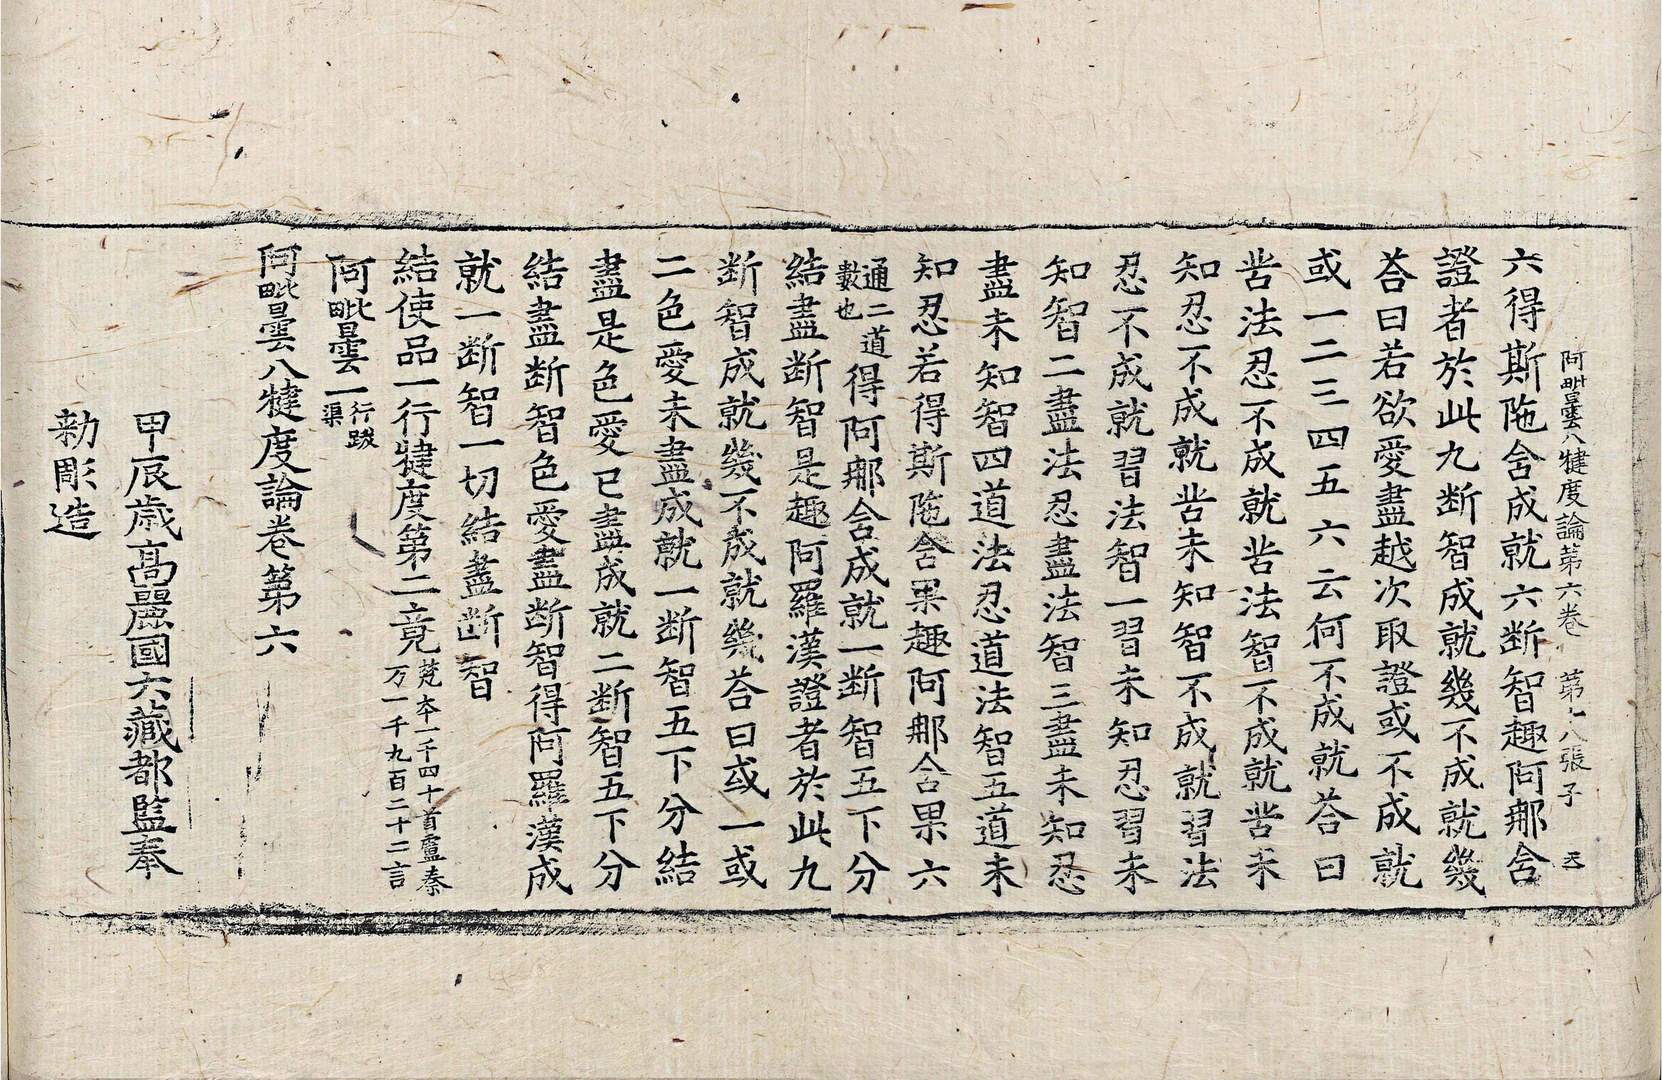 阿毗曇八犍度論第六卷 第十八張子 天
六得斯陁舍成就六断智趣阿那舍
證者於此九断智成就幾不成就幾
荅曰若欲愛盡越次取證或不成就
或一二三四五六云何不成就荅曰
苦法忍不成就苦法智不成就苦未
知忍不成就苦未知智不成就習法
忍不成就習法智一習未知忍習未
知智二盡法忍盡法智三盡未知忍
盡未知智四道法忍道法智五道未
知忍若得斯陁含果趣阿那含果六
通二道
數也
得阿那含成就一断智五下分
結盡断智是趣阿羅漢證者於此九
断智成就幾不成就幾荅曰或一或
二色愛未盡成就一断智五下分結
盡是色愛已盡成就二断智五下分
結盡断智色愛盡断智得阿羅漢成
就一断智一切結盡断智
結使品一行犍度第二竟
梵本一千四十首盧秦
万一千九百二十二言
阿毗曇一
行跋
渠
阿毗曇八犍度論卷第六
甲辰歲高麗國大藏都監奉
勅彫造